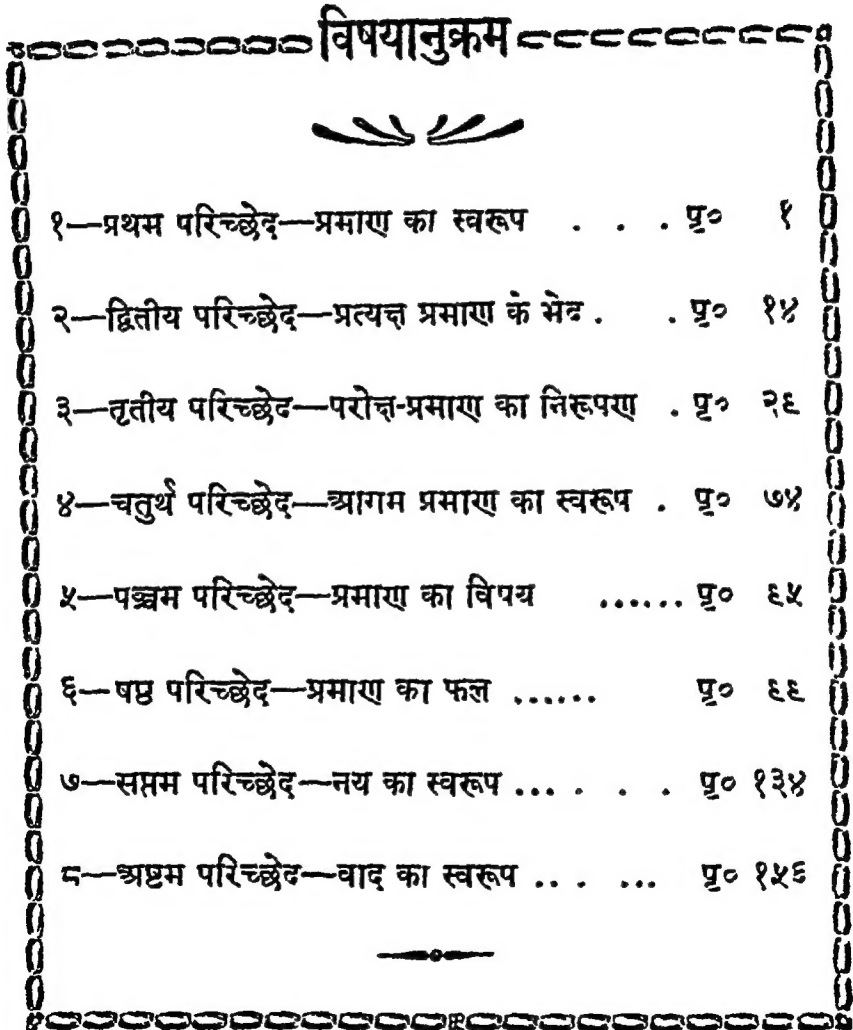 विषयानुक्रम
१—प्रथम परिच्छेद—प्रमाण का स्वरूप . . . पृ० १
२—द्वितीय परिच्छेद—प्रत्यक्ष प्रमाण के भेद . . पृ० १४
३—तृतीय परिच्छेद—परोक्ष-प्रमाण का निरूपण . पृ० २९
४—चतुर्थ परिच्छेद—आगम प्रमाण का स्वरूप . पृ० ७४
५—पञ्चम परिच्छेद—प्रमाण का विषय ...... पृ० ९५
६—षष्ठ परिच्छेद—प्रमाण का फल ...... पृ० ९९
७—सप्तम परिच्छेद—नय का स्वरूप ... . . . पृ० १३४
८—अष्टम परिच्छेद—वाद का स्वरूप .. . ... पृ० १५६